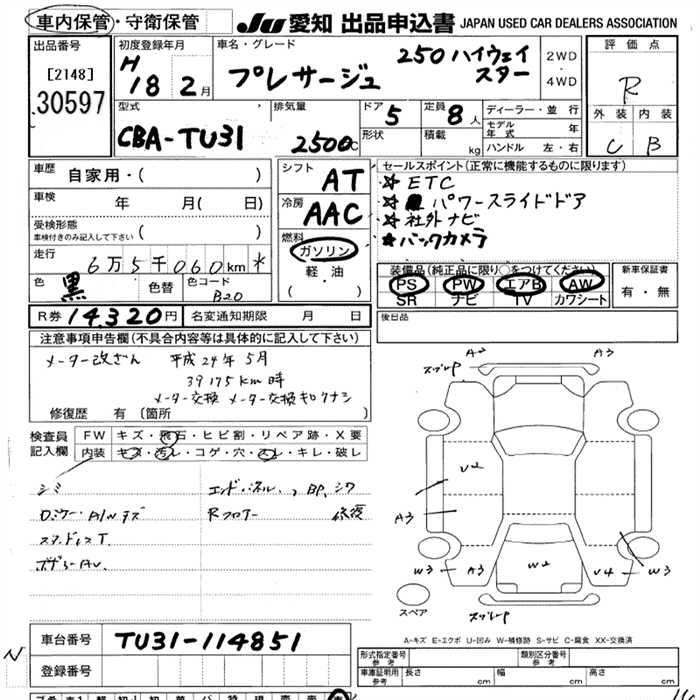 車内保管・守衛保管 JU 愛知 出品申込書 JAPAN USED CAR DEALERS ASSOCIATION
出品番号 初度登録年月 車名・グレード 評価点
[2148] H 18 2月 プレサージュ 250 ハイウェイ スター 2WD 4WD R
30597
型式 排気量 ドア 5 定員 8人 ディーラー・並行 外装 内装
CBA-TU31 2500cc 形状 積載 kg モデル年式 年 C B
ハンドル 左・右
車歴 自家用・( ) シフト AT セールスポイント(正常に機能するものに限ります)
車検 年 月( 日) 冷房 AAC ☆ ETC
☆ パワースライドドア
受検形態 車検付きのみ記入して下さい ( ) ☆ 社外ナビ
燃料 ガソリン ☆ バックカメラ
走行 6万5千060km * 軽・油
装備品(純正品に限り○をつけてください) 新車保証書
色 黒 色替 色コード B20 ( ・ ) PS PW エアB AW 有・無
SR ナビ TV カワシート
R券 14,320円 名変通知期限 月 日 後日品
注意事項申告欄(不具合内容等は具体的に記入して下さい)
メーター改ざん 平成24年5月
39175km時
メーター交換 メーター交換キロクナシ
修復歴 有 [箇所 ]
検査員記入欄 FW キズ・飛石・ヒビ割・リペア跡・X要
内装 キズ・汚レ・コゲ・穴・スレ・キレ・破レ
シミ
Rフロアー 修復
A2 A3
スプレP
U2
A3
W3 A3 W2 U4 W3
スプレーP
スペア
A-キズ E-エクボ U-凹み W-補修跡 S-サビ C-腐食 XX-交換済
車台番号 TU31-114851
N
登録番号
形式指定番号 参考 類別区分番号 参考
車庫証明用 参考 長さ cm 幅 cm 高さ cm